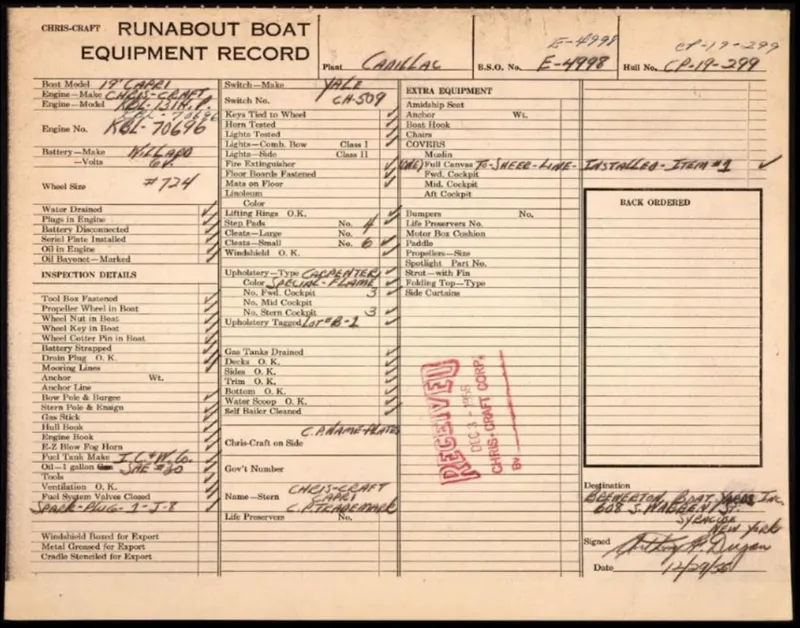 CHRIS-CRAFT RUNABOUT BOAT
EQUIPMENT RECORD
Plant CADILLAC
E-4998
B.S.O. No. E-4998
CP-19-299
Hull No. CP-19-299
Boat Model 19' CAPRI
Engine—Make CHRIS-CRAFT
Engine—Model KBL-131H.P.
KBL-70696
Engine No. KBL-70696
Battery—Make WILLARD
—Volts 6V.
Wheel Size #724
Water Drained
Plugs in Engine
Battery Disconnected
Serial Plate Installed
Oil in Engine
Oil Bayonet—Marked
INSPECTION DETAILS
Tool Box Fastened
Propeller Wheel in Boat
Wheel Nut in Boat
Wheel Key in Boat
Wheel Cotter Pin in Boat
Battery Strapped
Drain Plug O. K.
Mooring Lines
Anchor Wt.
Anchor Line
Bow Pole & Burgee
Stern Pole & Ensign
Gas Stick
Hull Book
Engine Book
E-Z Blow Fog Horn
Fuel Tank Make I.C.&W.Co.
Oil—1 gallon SAE #30
Tools
Ventilation O. K.
Fuel System Valves Closed
SPARK-PLUG-1-J-8
Windshield Boxed for Export
Metal Greased for Export
Cradle Stenciled for Export
Switch—Make YALE
Switch No. CH-509
Keys Tied to Wheel
Horn Tested
Lights Tested
Lights—Comb. Bow Class I
Lights—Side Class II
Fire Extinguisher
Floor Boards Fastened
Mats on Floor
Linoleum
Color
Lifting Rings O.K.
Step Pads No. 4
Cleats—Large No.
Cleats—Small No. 6
Windshield O. K.
Upholstery—Type CARPENTER
Color SPECIAL-FLAME
No. Fwd. Cockpit 3
No. Mid Cockpit
No. Stern Cockpit 3
Upholstery Tagged LOT#B-1
Gas Tanks Drained
Decks O. K.
Sides O. K.
Trim O. K.
Bottom O. K.
Water Scoop O. K.
Self Bailer Cleaned
C.P. NAME-PLATES
Chris-Craft on Side
Gov't Number
CHRIS-CRAFT
Name—Stern CAPRI
C.P. TRADEMARK
Life Preservers No.
EXTRA EQUIPMENT
Amidship Seat
Anchor Wt.
Boat Hook
Chairs
COVERS
Muslin
(ONE) Full Canvas TO-SHEER-LINE-INSTALLED-ITEM #1
Fwd. Cockpit
Mid. Cockpit
Aft Cockpit
Bumpers No.
Life Preservers No.
Motor Box Cushion
Paddle
Propellers—Size
Spotlight Part No.
Strut—with Fin
Folding Top—Type
Side Curtains
RECEIVED
CHRIS-CRAFT CORP.
By
BACK ORDERED
Destination
BREWERTON BOAT YARDS INC.
608 S. WARREN ST.
SYRACUSE
NEW YORK
Signed
Date